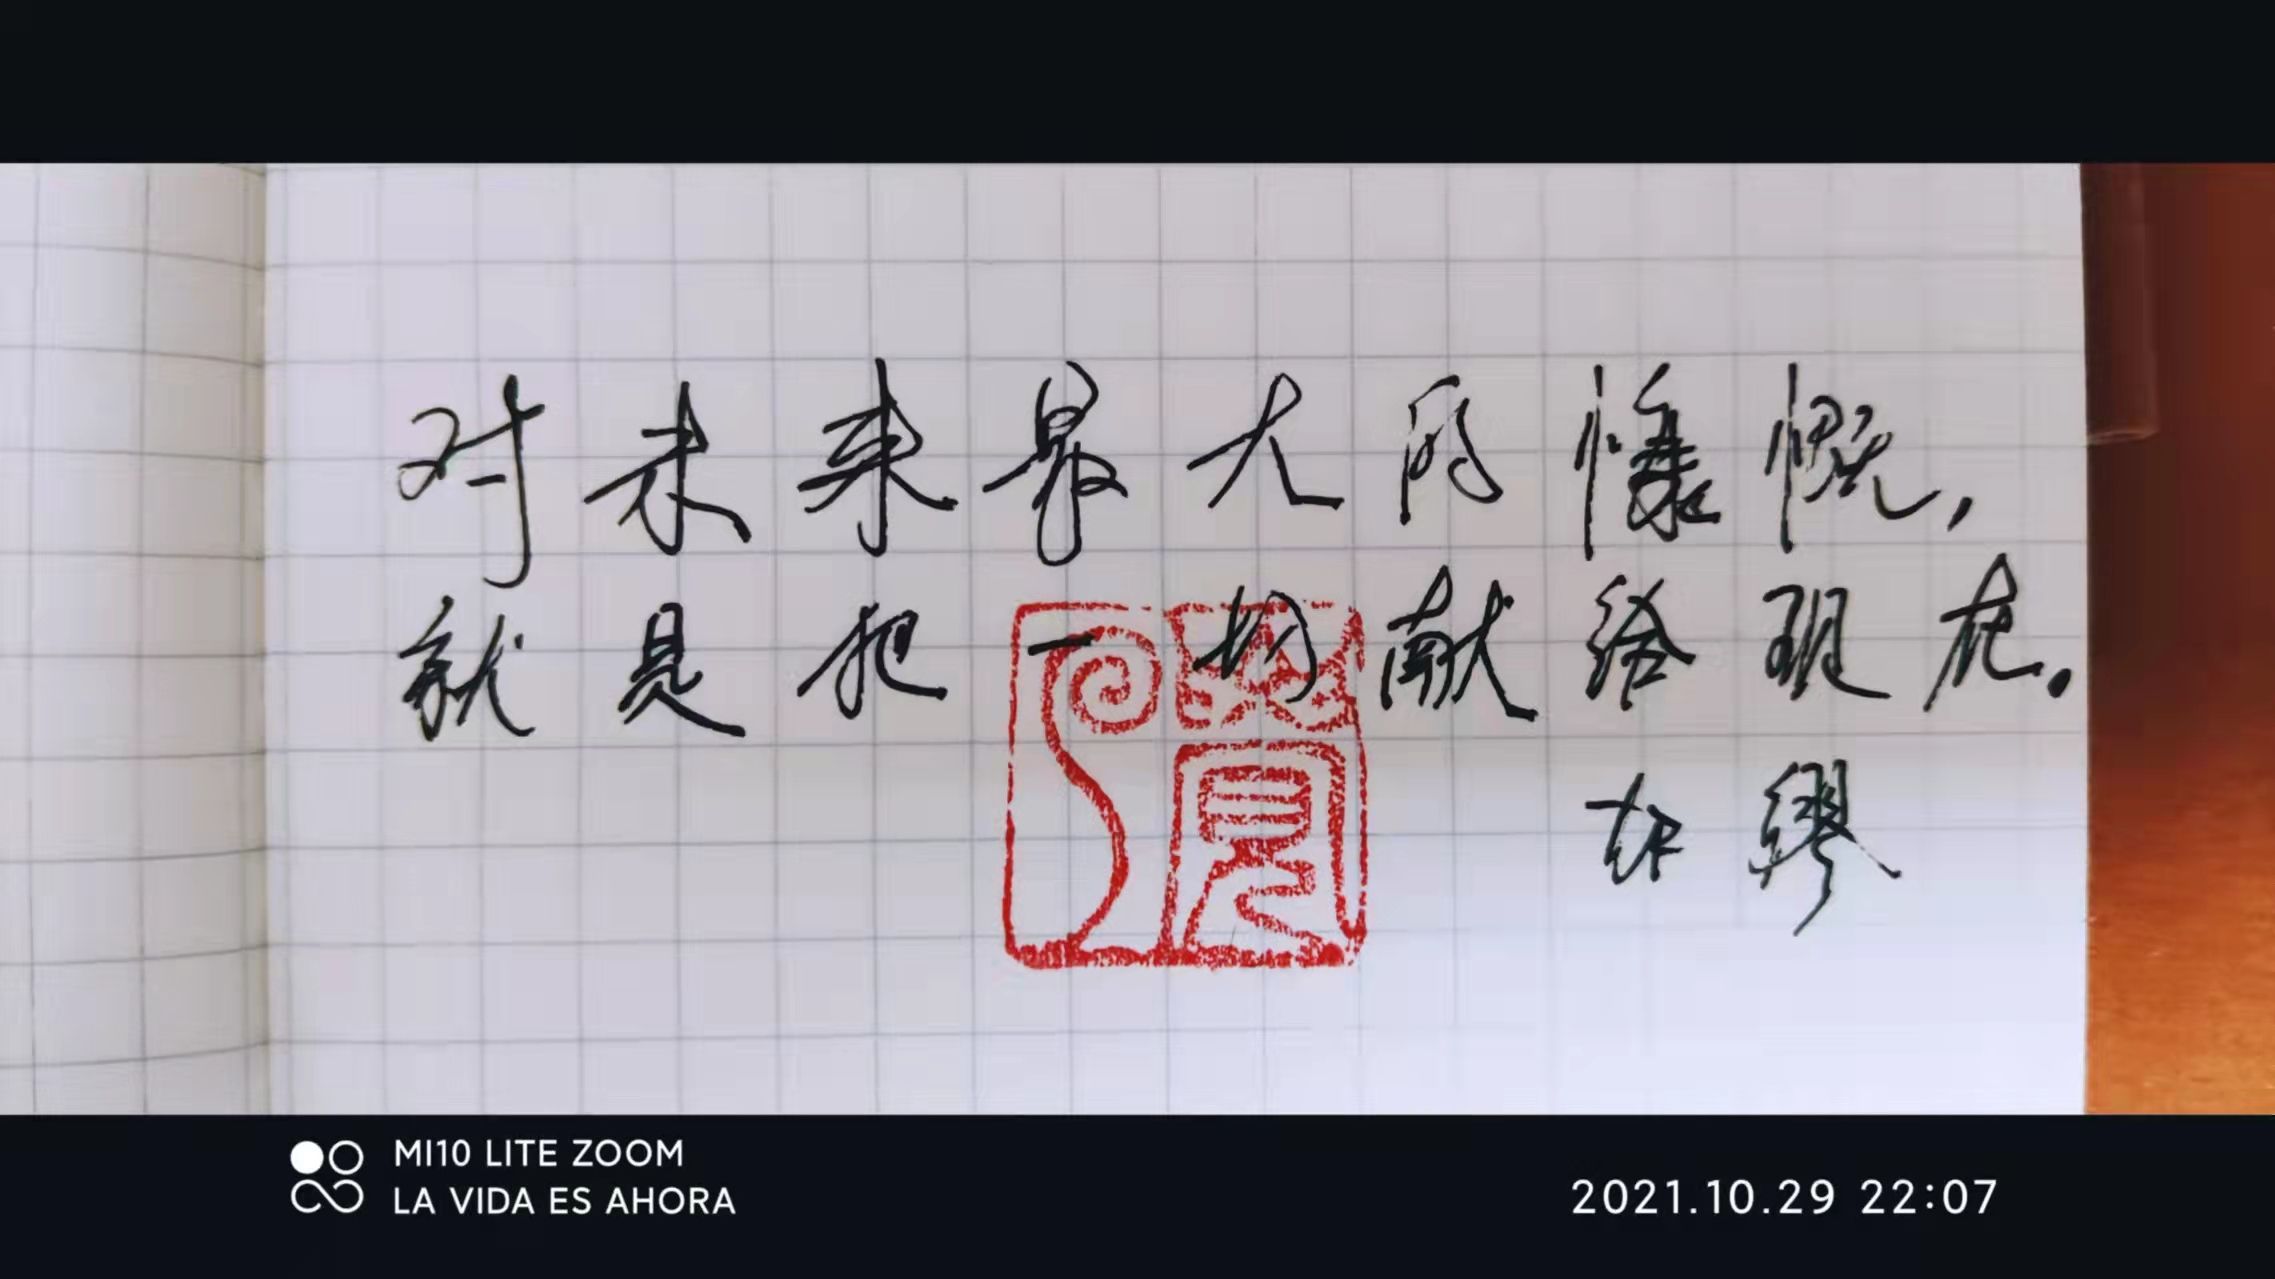 对未来最大的慷慨,
就是把一切献给现在.
加缪
MI10 LITE ZOOM
LA VIDA ES AHORA
2021.10.29 22:07